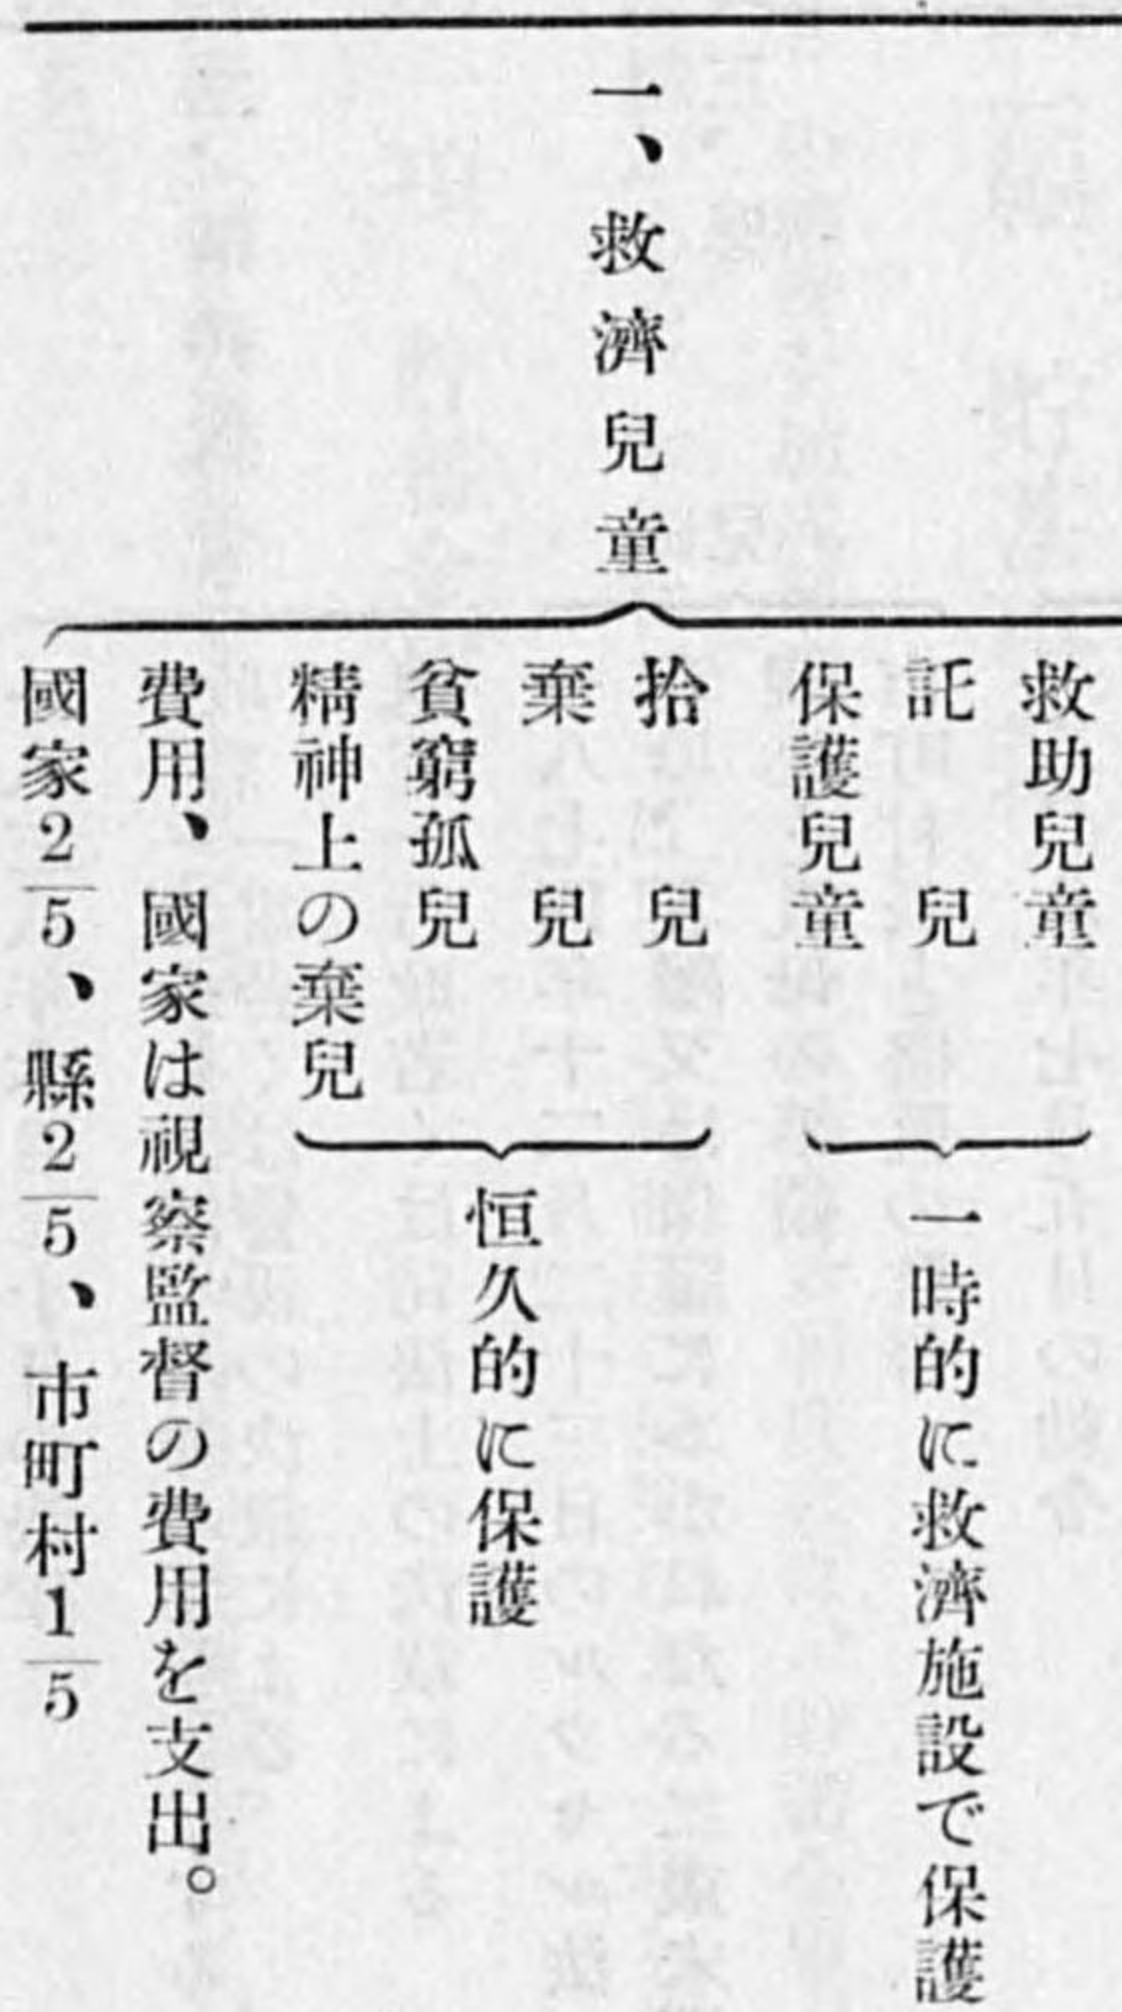 一、救濟兒童
救助兒童
託兒
保護兒童
一時的に救濟施設で保護
拾兒
棄兒
貧窮孤兒
精神上の棄兒
恒久的に保護
費用、國家は視察監督の費用を支出。
國家2/5、縣2/5、市町村1/5